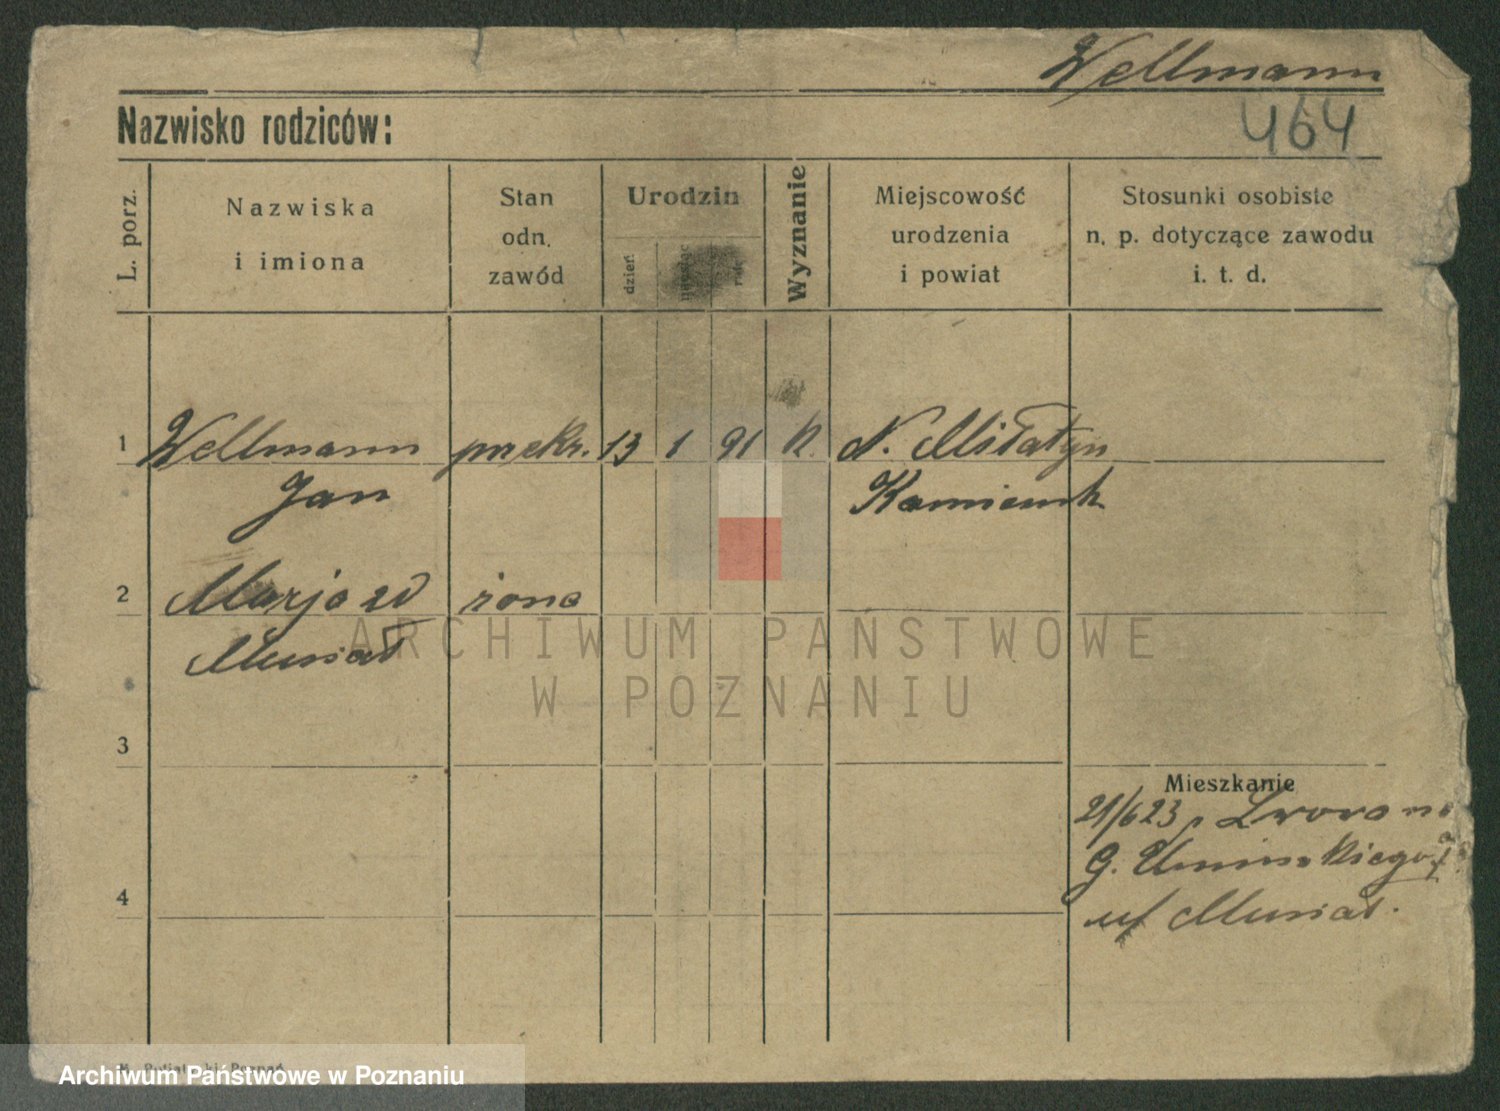 Wellmann
Nazwisko rodziców:
464
L. porz.
Nazwiska
i imiona
Stan
odn.
zawód
Urodzin
dzień
Wyznanie
Miejscowość
urodzenia
i powiat
Stosunki osobiste
n. p. dotyczące zawodu
i. t. d.
1 Wellmann przekr. 13 1 91 k. N. Miłatyn
Jan
Kamionk
2 Marja zd żona
Musiał
ARCHIWUM PAŃSTWOWE
W POZNANIU
3
Mieszkanie
21/6 23 Lwowa
G. Umińskiego
4
Musiał.
Poznań
Archiwum Państwowe w Poznaniu